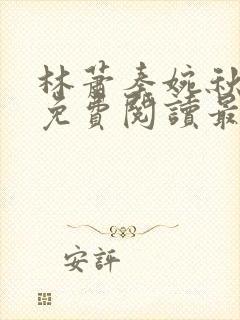 林蕭秦婉秋
免費閱讀最
安評